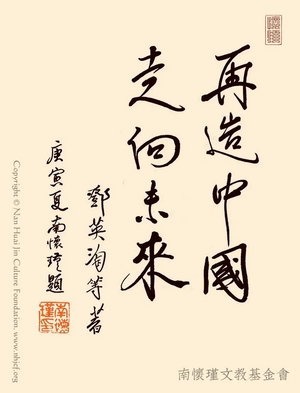 再造中國
走向未來
鄧英淘等著
庚寅夏南懷瑾題
南懷瑾印
Copyright © Nan Huai Jin Culture Foundation. www.nhjcf.org
南懷瑾文教基金會